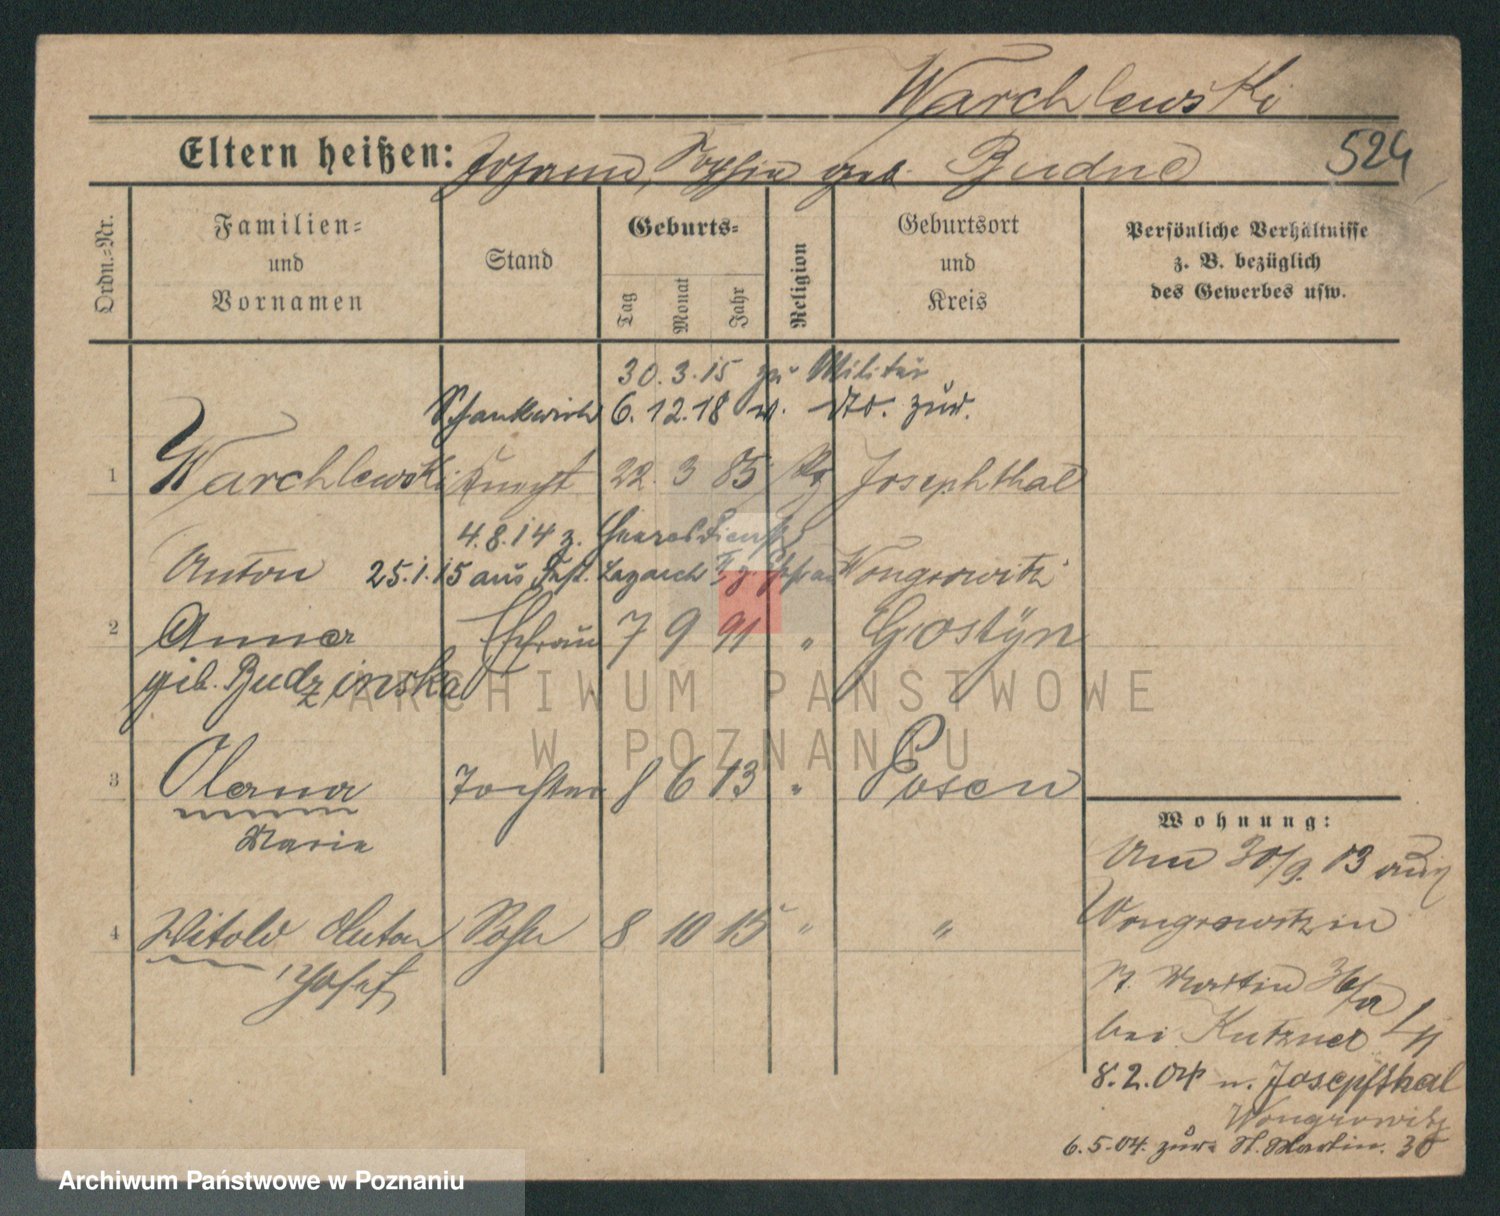 Warchlewski
Eltern heißen: Johann, Sophie geb. Budne
524
Ordn.=Nr.
Familien=
und
Vornamen
Stand
Geburts=
Tag
Monat
Jahr
Religion
Geburtsort
und
Kreis
Persönliche Verhältnisse
z. B. bezüglich
des Gewerbes usw.
30. 3. 15 zu Militär
Schankwirth 6. 12. 18 v. dto. zur.
1 Warchlewski Knecht 22. 3 85 Josephthal
4. 8. 14 z. Heeresdienst
Anton 25. 1. 15 aus Fest. Lazareth Wongrowitz
2 Anna Ehefrau 7 9 91 " Gostÿn
geb. Budzinska
3 Olena Tochter 8 6 13 " Posen
Marie
4 Witold Anton Sohn 8 10 15 " "
Josef
Wohnung:
Am 30/9. 03 aus
Wongrowitz in
St. Martin 36/a
bei Kutzner
8. 2. 04 n. Josephthal
Wongrowitz
6. 5. 04. zur. St. Martin. 36
ARCHIWUM PAŃSTWOWE
W POZNANIU
Archiwum Państwowe w Poznaniu